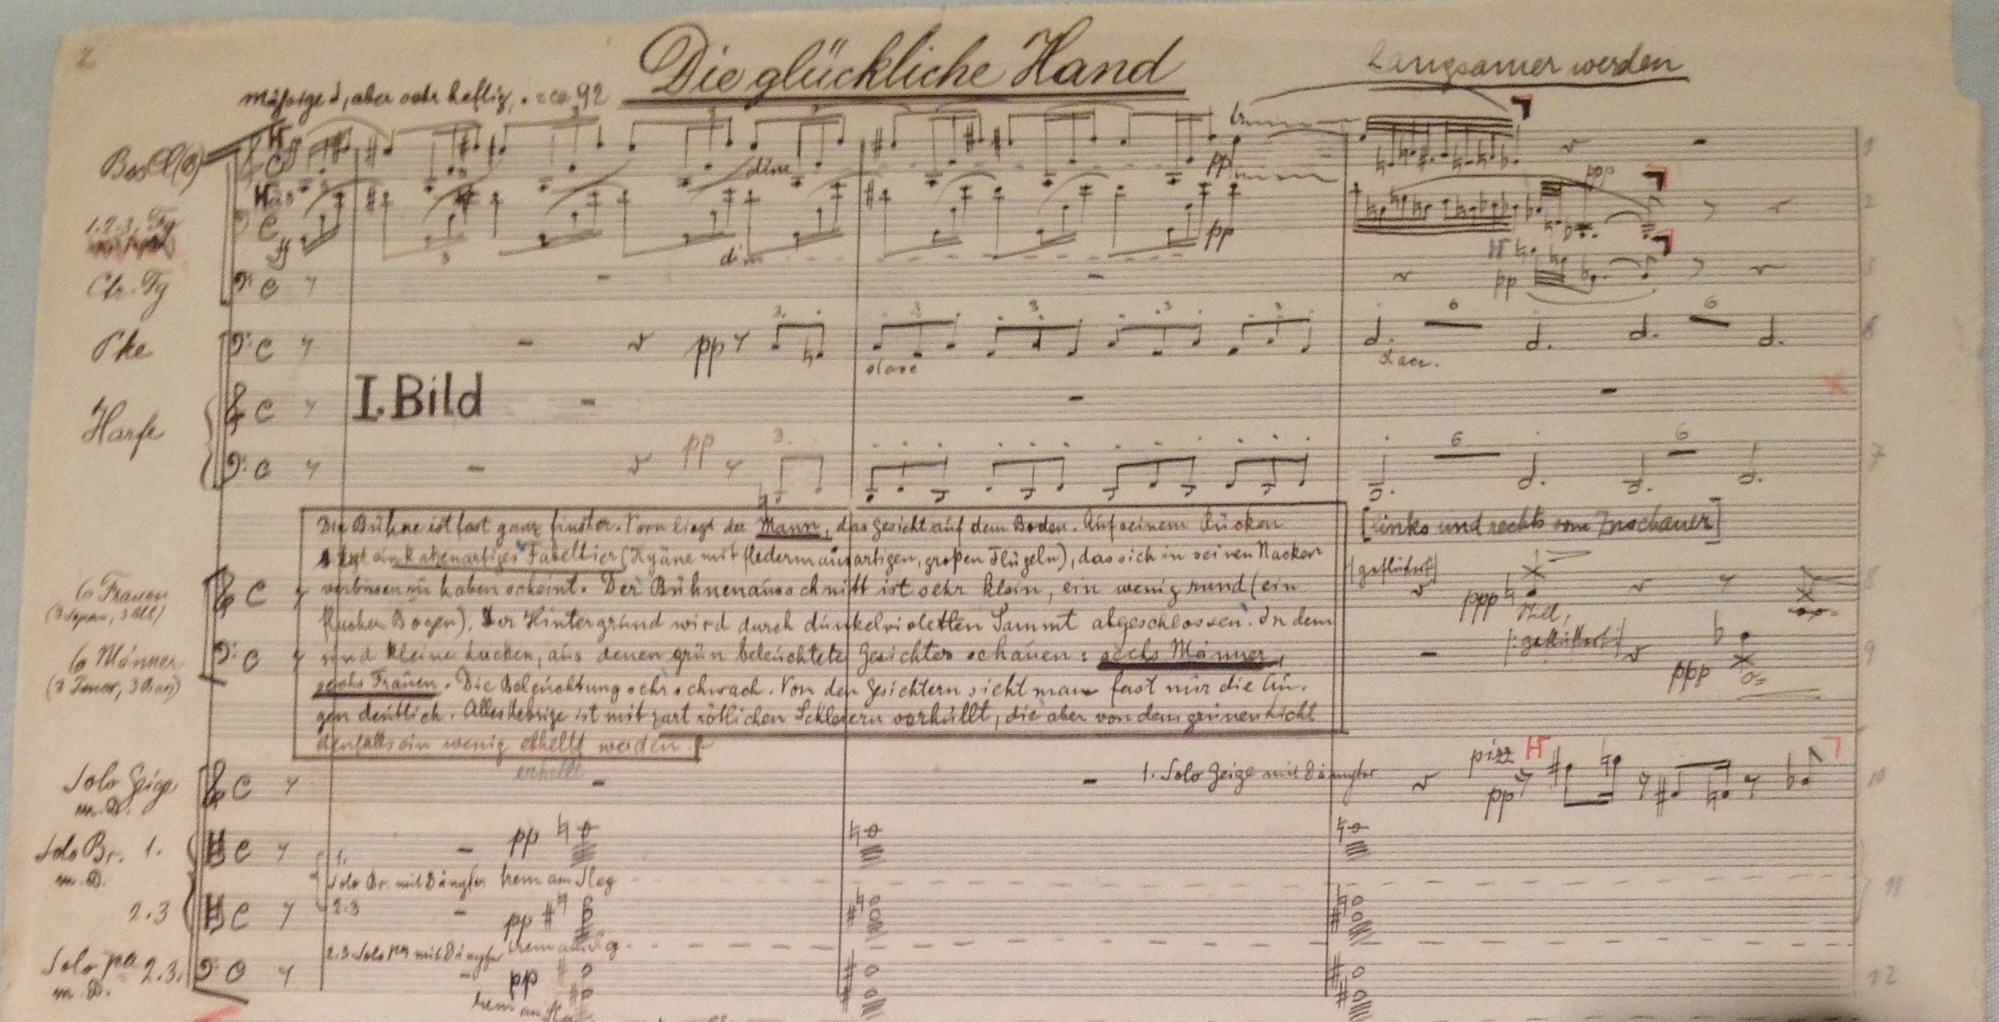 2
Die glückliche Hand
Langsamer werden
aber sehr heftig, = ca 92
Bas Cl (B)
ff
dim
pp
ppp
1. 2. 3. Fg
ff
dim
pp
Ctr. Fg
pp
Pke
pp
stacc.
I. Bild
Harfe
pp
Die Bühne ist fast ganz finster. Vorn liegt der Mann, das Gesicht auf dem Boden. Auf seinem Rücken
[links und rechts vom Zuschauer]
sitzt ein katzenartiges Fabeltier (Hyäne mit fledermausartigen, großen Flügeln), das sich in seinen Nacken
verbissen zu haben scheint. Der Bühnenausschnitt ist sehr klein, ein wenig rund (ein
flacher Bogen). Der Hintergrund wird durch dunkelvioletten Sammt abgeschlossen. In dem
sind kleine Lucken, aus denen grün beleuchtete Gesichter schauen: sechs Männer,
sechs Frauen. Die Beleuchtung sehr schwach. Von den Gesichtern sieht man fast nur die Au-
gen deutlich. Alles Uebrige ist mit zart rötlichen Schleiern verhüllt, die aber von dem grünen Licht
denfalls ein wenig erhellt werden.
erhellt
6 Frauen
(3 Sopran, 3 Alt)
(geflüstert)
ppp
Still,
6 Männer
(3 Tenor, 3 Bass)
geflüstert
ppp
Solo Geige
m. D.
1. Solo Geige mit Dämpfer
pizz
pp
Solo Br. 1.
m. D.
1.
Solo Br. mit Dämpfer
pp
trem am Steg
2.3
2.3
pp
trem am Steg
Solo 2.3.
m. D.
2.3 Solo mit Dämpfer
pp
trem am Steg
1
2
3
6
7
8
9
10
11
12